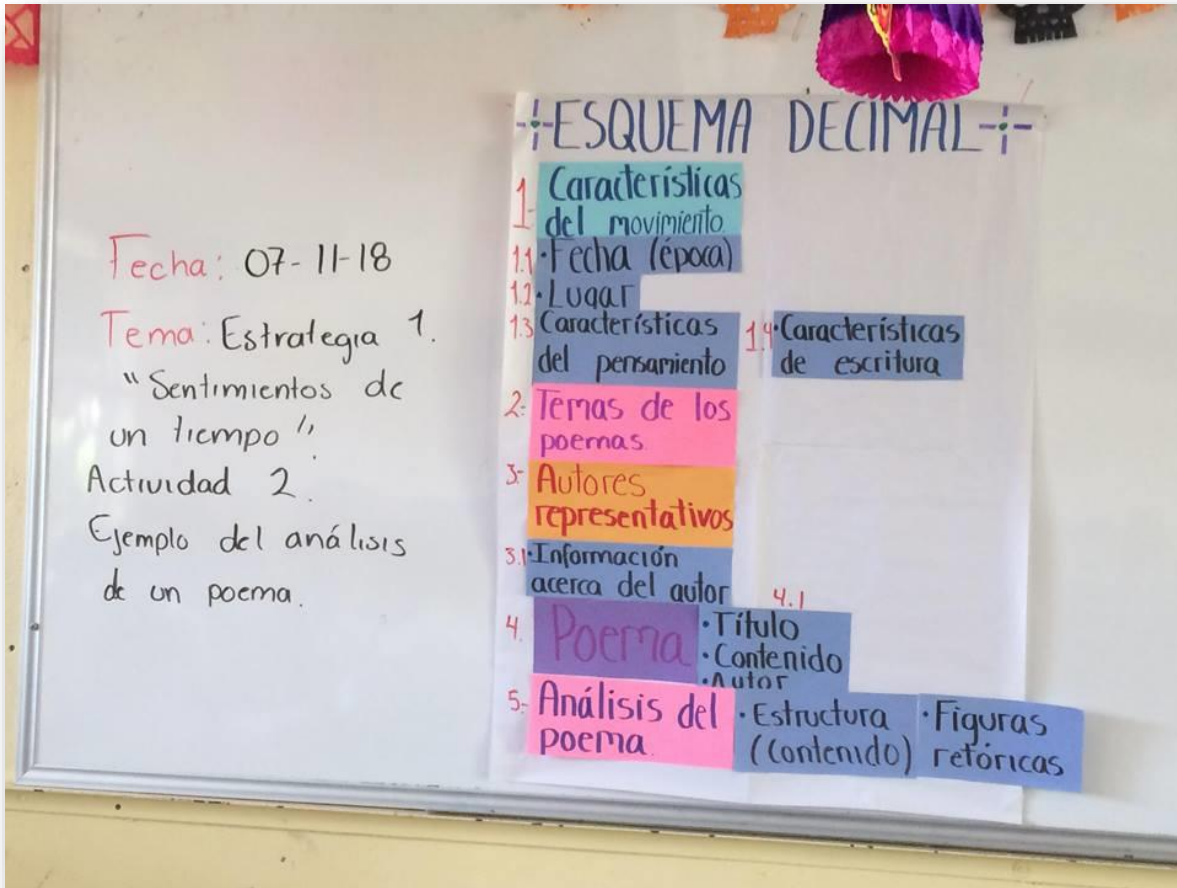 Fecha: 07-11-18
Tema: Estrategia 1.
"Sentimientos de
un tiempo".
Actividad 2.
Ejemplo del análisis
de un poema.
ESQUEMA DECIMAL
1- Características
del movimiento.
1.1 · Fecha (época)
1.2 · Lugar
1.3 Características
del pensamiento
1.4 · Características
de escritura
2- Temas de los
poemas.
3- Autores
representativos
3.1 · Información
acerca del autor
4. Poema
4.1
· Título
· Contenido
· Autor
5- Análisis del
poema.
· Estructura
(contenido)
· Figuras
retóricas